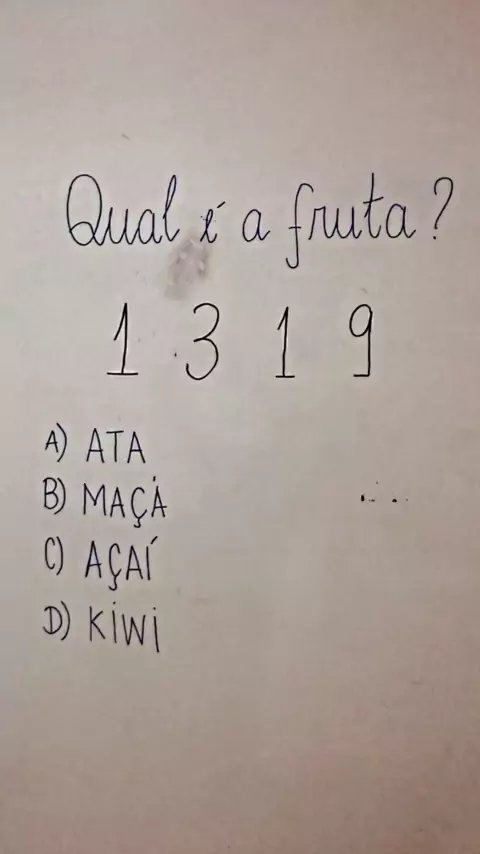 Qual é a fruta?
1 3 1 9
A) ATA
B) MAÇÃ
C) AÇAÍ
D) KIWI